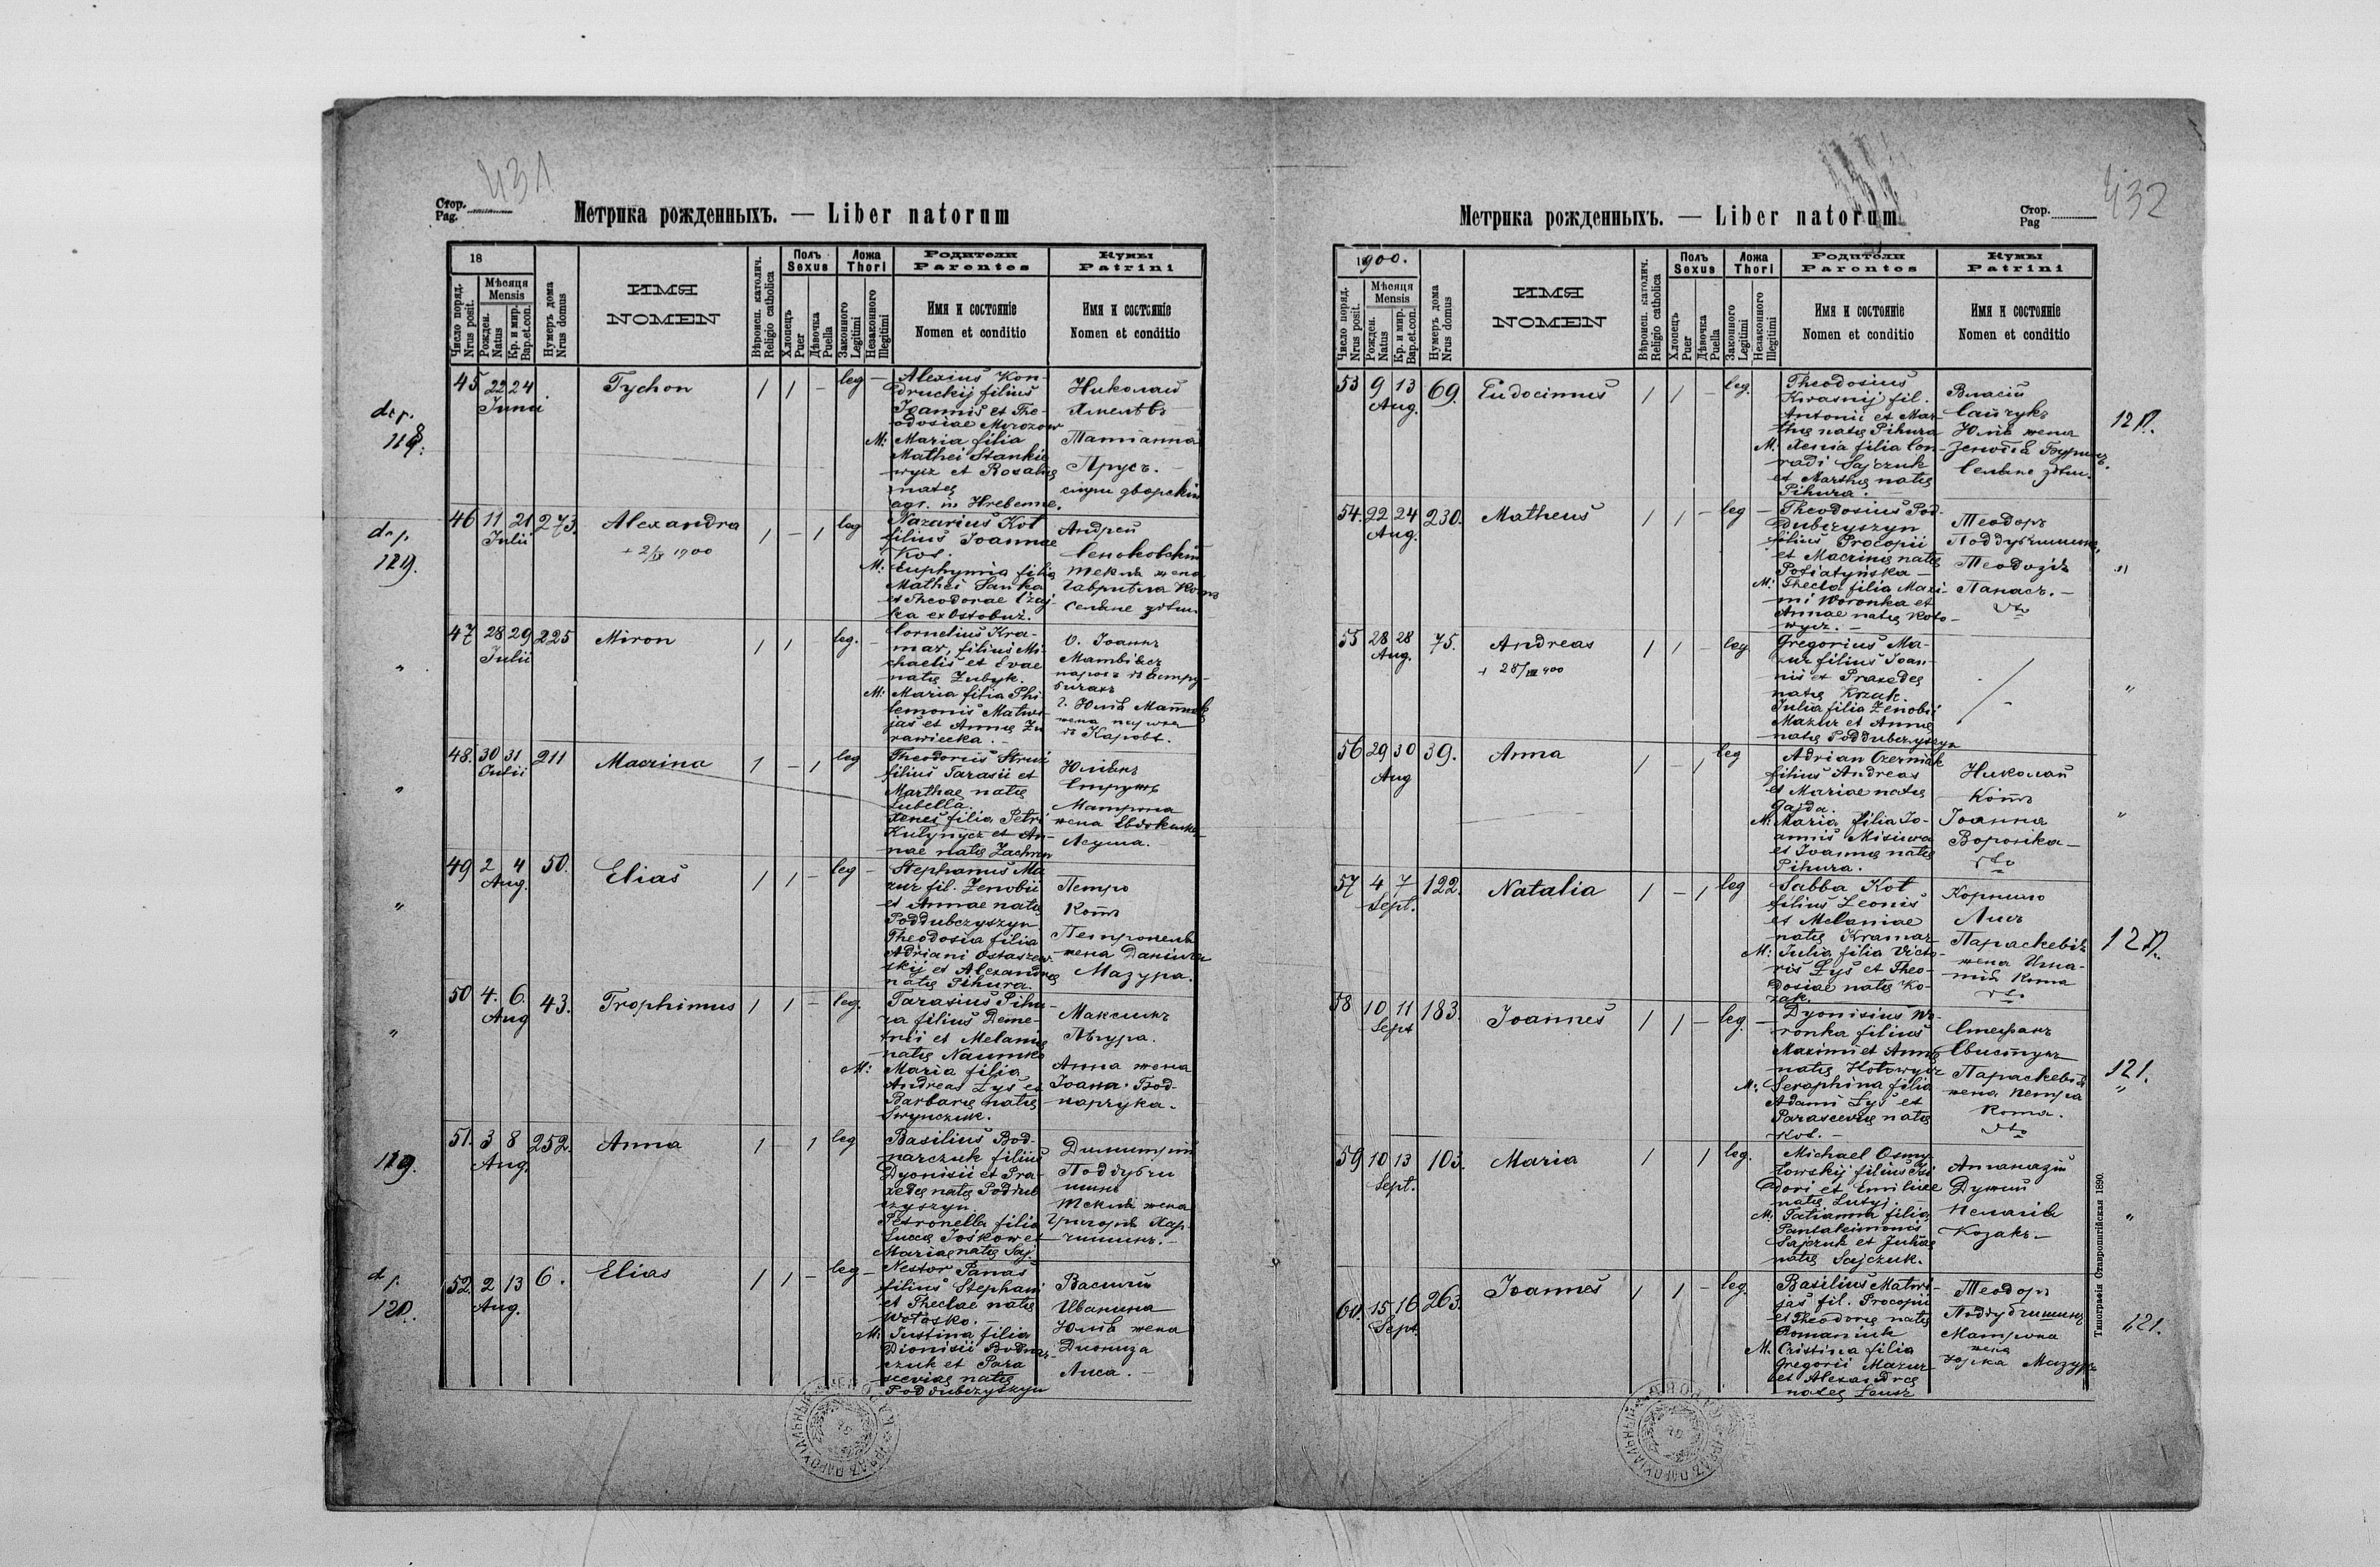 431
Стор.
Pag.
Метрика рожденныхъ. — Liber natorum
18
Число поряд.
Nrus posit.
Мѣсяця
Mensis
Рожден.
Natus
Кр. и мир.
Bap.et.con.
Нумеръ дома
Nrus domus
ИМЯ
NOMEN
Вѣроисп. католич.
Religio catholica
Полъ
Sexus
Хлопецъ
Puer
Дѣвочка
Puella
Ложа
Thori
Законного
Legitimi
Незаконного
Illegitimi
Родители
Parentes
Имя и состояніе
Nomen et conditio
Кумы
Patrini
Имя и состояніе
Nomen et conditio
45 22 24 Tychon 1 1 - leg -
Junii
Alexius Kon-
druckij filius
Joannis et The-
odosiae Morozow
M: Maria filia
Mathei Stankie
wycz et Rosalię
natę
agr. in Hrebenne.
Николай
Татіанна
Прусъ. -
слуги дворскіи
119.
46 11 21 273. Alexandra 1 - 1 leg
Julii
+ 2/IX 1900
Nazarius Kot
filius Joannae
Kot.
M: Euphymia filia
Mathei Sanka
et Theodorae Czaj-
ka ex Ostobuż.
Андрей
Сеньковскій
Текля жена
Гавриила Кота
Селяне
119.
47 28 29 225 Miron 1 1 - leg. -
Julii
Cornelius Kra-
mar, filius Mi-
chaelis et Evae
natę Zubyk.
M: Maria filia Phi
lemonis Matwi-
jas et Annę Żu
rawiecka. -
О. Іоаннъ
Матвіясъ
жена
въ Каровѣ.
"
48. 30 31 211 Macrina 1 - 1 leg
Julii
Theodorus Struś
filius Tarasii et
Marthae natę
Lubella.
Xenes filia Petri
Kulynycz et An-
nae natę
Юліанъ
Струсь
Матрона
жена
"
49 2 4 50. Elias 1 1 - leg -
Aug.
Stephanus Ma
zur fil. Zenobii
et Annae natę
Poddubczyszyn
Theodosia filia
Adriani Ostaszew-
skij et Alexandrę
natę Pihura.
Петро
Котъ
Петронеля
жена Даніила
Мазура.
"
50 4. 6. 43. Trophimus 1 1 - leg.
Aug
Tarasius Pihu-
ra filius Deme-
trii et Melanię
natę Naumko
M: Maria filia
Andreas Łyś et
Barbarę natę
Swynczuk.
Максимъ
Пѣгура.
Анна жена
Іоана Бод-
нарчука.
"
51. 3 8 252. Anna 1 - 1 leg
Aug.
Basilius Bod-
narczuk filius
Dyonisii et Pra-
xedę natę Poddub
czyszyn.
Petronella filia
Lucę Jośkow et
Mariae natę Saj.
Димитрій
Поддубчи
шинъ
Текля жена
Григорія
119.
52. 2 13 6. Elias 1 1 - leg -
Aug.
Nestor Panas
filius Stephani
et Theclae natę
Wołosko.
M: Justina filia
Dionisii Bodnar-
czuk et Para
scevię natę
Poddubczyszyn
Василій
Иванина
Юлія жена
Дионіза
Лиса. -
120.
432
Стор.
Pag
Метрика рожденныхъ. — Liber natorum
1900.
Число поряд.
Nrus posit.
Мѣсяця
Mensis
Рожден.
Natus
Кр. и мир.
Bap.et.con.
Нумеръ дома
Nrus domus
ИМЯ
NOMEN
Вѣроисп. католич.
Religio catholica
Полъ
Sexus
Хлопецъ
Puer
Дѣвочка
Puella
Ложа
Thori
Законного
Legitimi
Незаконного
Illegitimi
Родители
Parentes
Имя и состояніе
Nomen et conditio
Кумы
Patrini
Имя и состояніе
Nomen et conditio
53 9 13 69. Eudocimus 1 1 - leg.
Aug.
Theodosius
Krasnij fil.
Antonii et Mar-
thę natę Pihura
M. Xenia filia Con-
radi Sajczuk
et Marthę natę
Pihura. -
Власій
Сайчукъ
Юлія жена
Селяне
120.
54. 22 24 230. Matheus 1 1 - leg -
Aug.
Theodosius Pod-
dubczyszyn
filius Procopii
et Macrinę natę
Potiatynska -
M: Thecla filia Maxi-
mi Woronka et
Annae natę Koto-
wycz. -
Теодоръ
Поддубчишинъ
Теодозія
Панасъ. -
dto
"
55 28 28 75. Andreas 1 1 - leg
Aug.
+ 28/VIII 900
Gregorius Ma-
zur filius Joan-
nis et Praxedę
natę Kozak.
Julia filia Zenobii
Mazur et Annę
natę Poddubczyszyn
"
56 29 30 39. Anna 1 - 1 leg
Aug
Adrian Czerniak
filius Andreas
et Mariae natę
Gajda.
M: Maria filia Jo-
annis Misiura
et Joannę natę
Pihura.
Николай
Котъ
Іоанна
Воронка -
dto
"
57 4 7 122. Natalia 1 - 1 leg
Sept.
Sabba Kot
filius Leonis
et Melaniae
natę Kramar
M: Julia filia Victo-
ris Łyś et Theo-
dosiae natę Ko-
zak.
Корнило
Лисъ
Параскевія
жена Игна-
тія Кота
dto
120.
58 10 11 183. Joannes 1 1 - leg. -
Sept
Dyonisius Wo-
ronka filius
Maximi et Annę
natę Kotowycz
M: Seraphina filia
Adami Łyś et
Parascevię natę
Kot. -
Стефанъ
Свистунъ
Параскевія
жена Петра
Кота.
dto
121.
"
59 10 13 103. Maria 1 1 leg.
Sept.
Michael Osmy-
łowskij filius Isi
dori et Emiliae
natę Lutyj.
M: Tatianna filia
Pantaleimonis
Sajczuk et Julię
natę Sajczuk.
Атаназій
Дужій
Пелагія
Козакъ. -
"
60. 15 16 263. Joannes 1 1 - leg.
Sept.
Basilius Matwi-
jas fil. Procopii
et Theodorę natę
Romaniuk
M. Cristina filia
Gregorii Mazur
et Alexandrę
natę Łeusz
Теодоръ
Поддубчишинъ
Матрона
жена
Юрка Мазура
121.
Типографія Ставропигійская 1890.